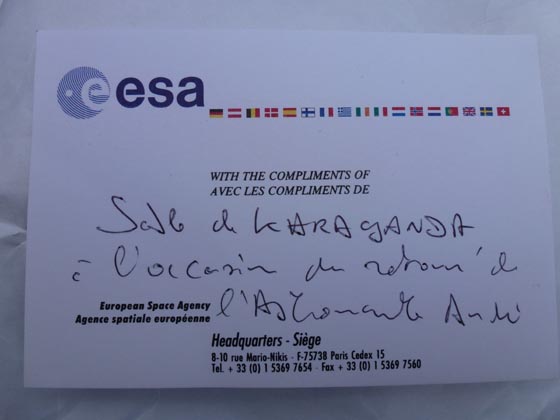 esa
WITH THE COMPLIMENTS OF
AVEC LES COMPLIMENTS DE
de KARAGANDA
à l'occasion du retour de
l'Astronaute André
European Space Agency
Agence spatiale européenne
Headquarters - Siège
8-10 rue Mario-Nikis - F-75738 Paris Cedex 15
Tel. + 33 (0) 1 5369 7654 - Fax + 33 (0) 1 5369 7560